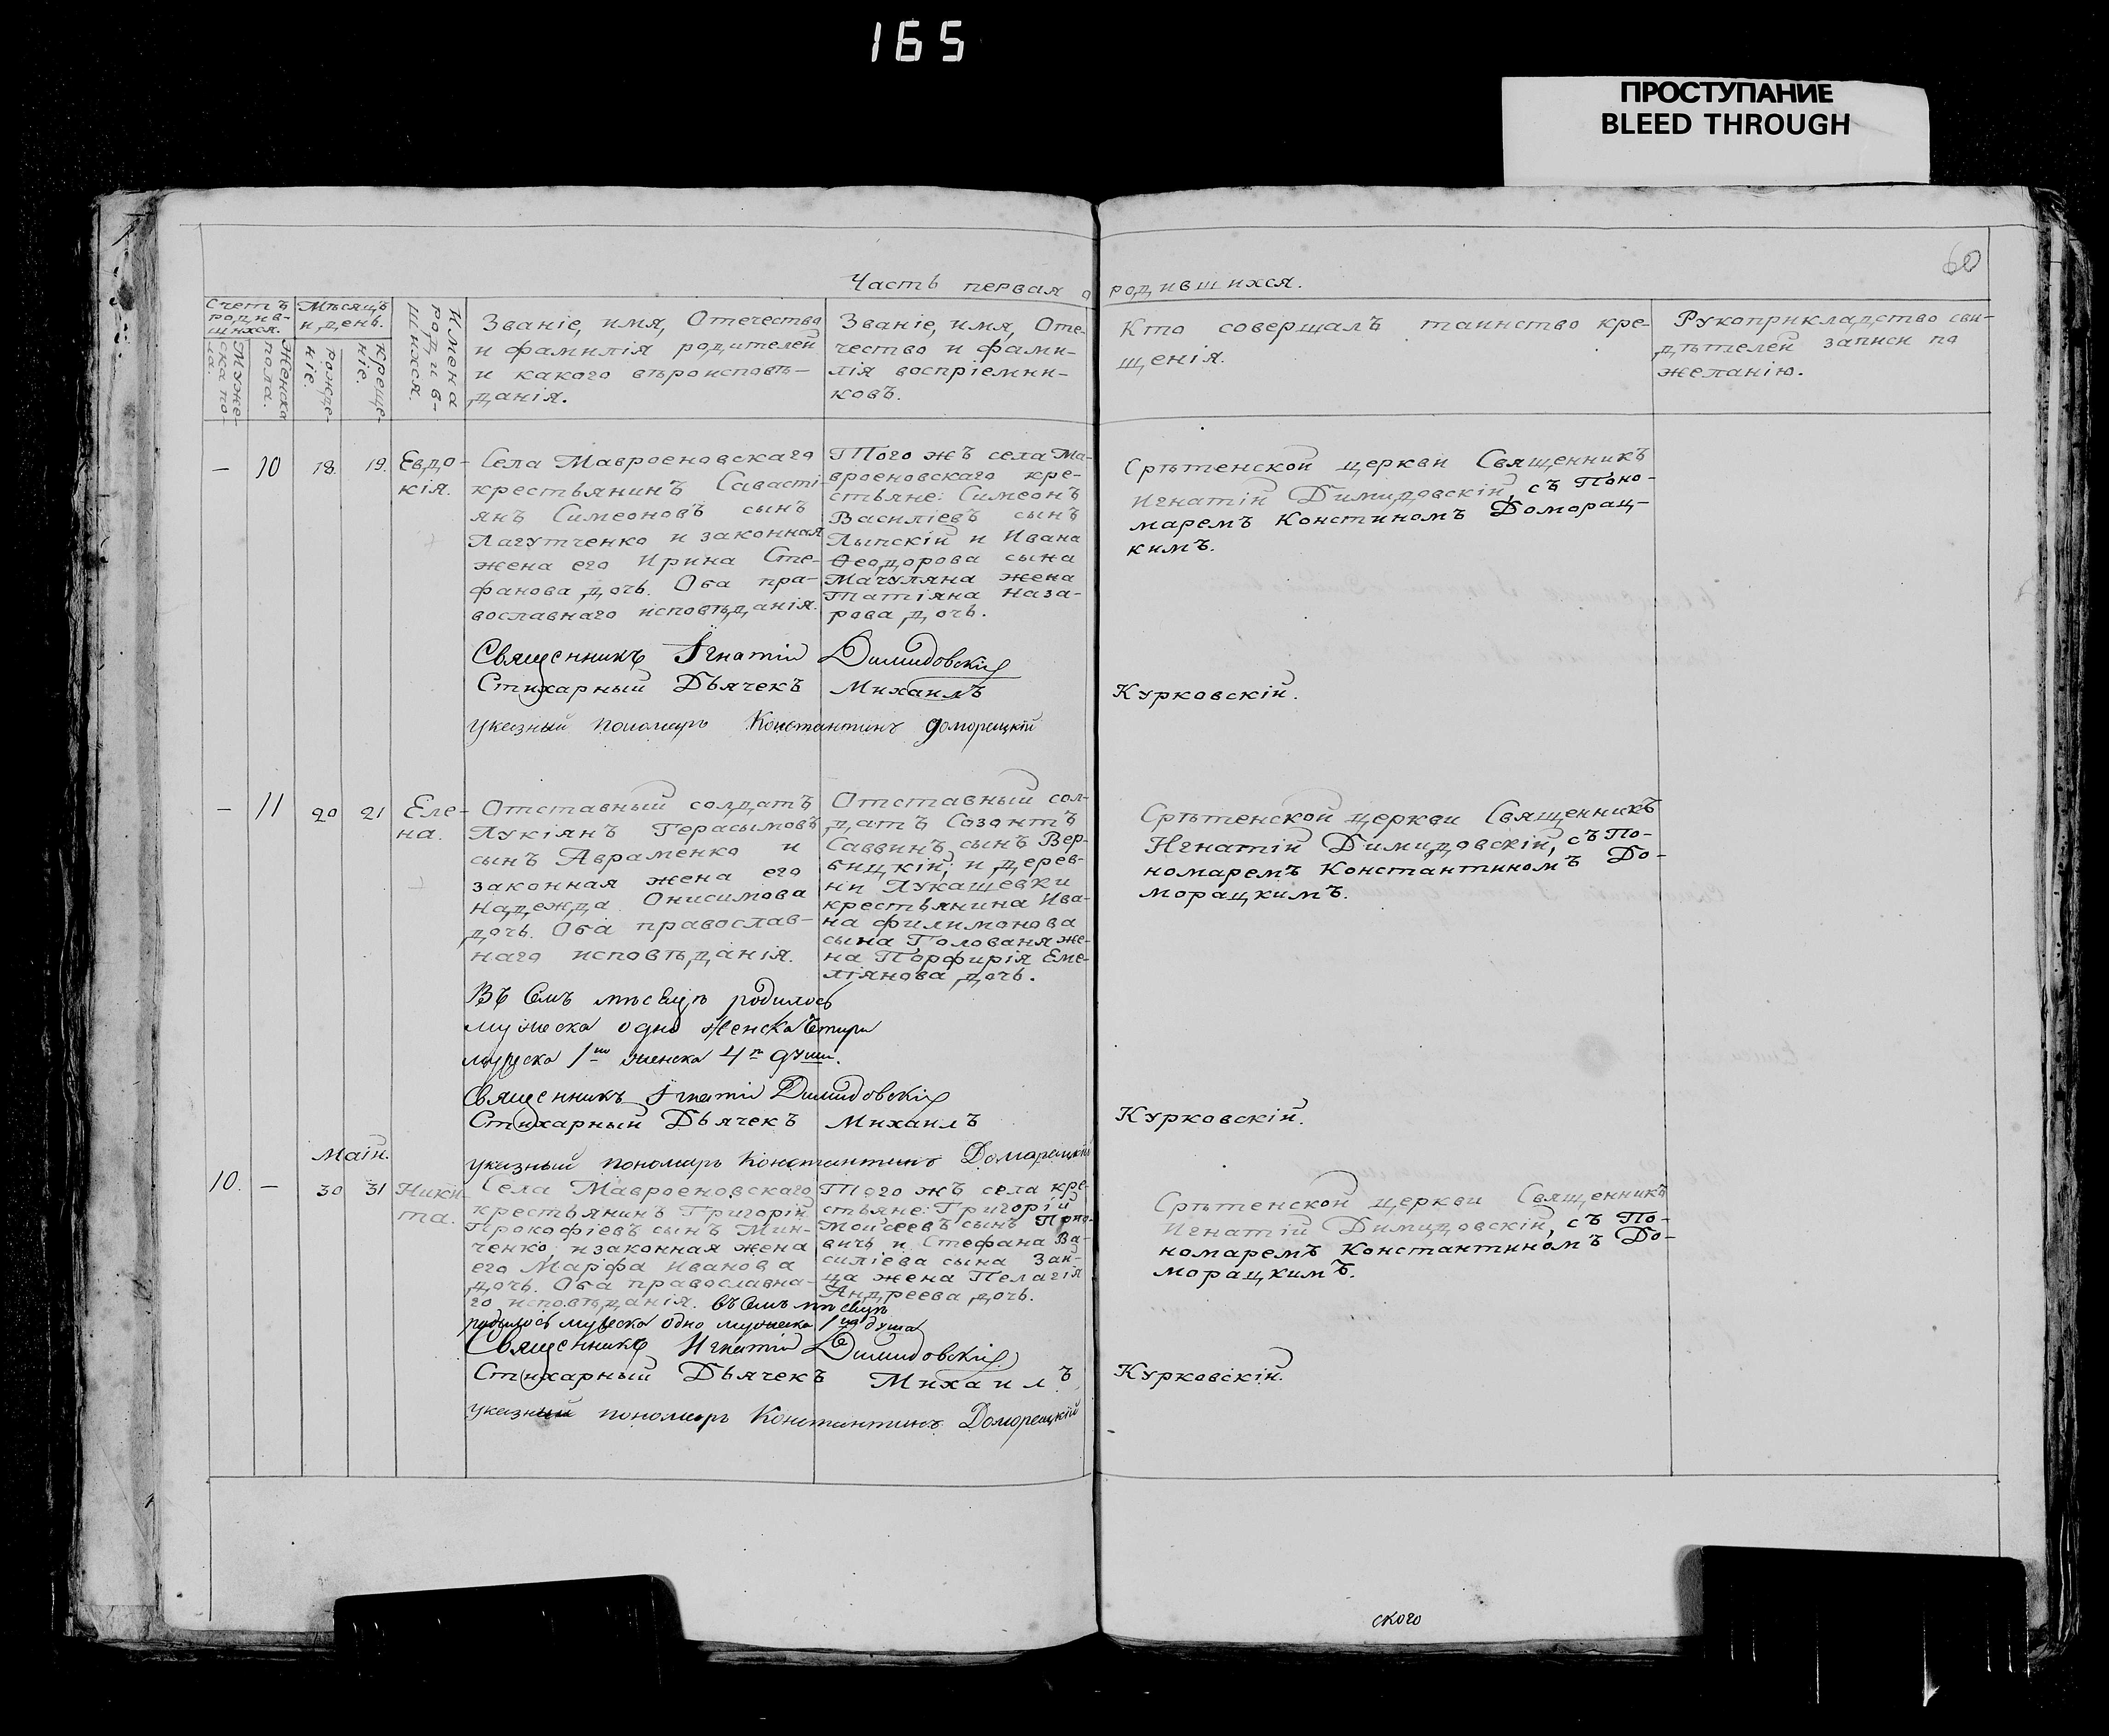 165
ПРОСТУПАНИЕ
BLEED THROUGH
60
Часть первая о родившихся.
Счетъ родив-шихся.
Мужеска пола.
Женска пола.
Мѣсяцъ и день.
рожде-ніе.
креще-ніе.
Имена родив-шихся.
Званіе, имя, Отечество
и фамилія родителей
и какого вѣроисповѣ-
данія.
Званіе, имя, Оте-
чество и фами-
лія воспріемни-
ковъ.
Кто совершалъ таинство кре-
щенія.
Рукоприкладство сви-
дѣтелей записи по
желанію.
— 10 18. 19. Евдо-
кія.
Села Мавроеновскаго
крестьянинъ Савасті-
янъ Симеоновъ сынъ
Лагутченко и законная
жена его Ирина Сте-
фанова дочь. Оба пра-
вославнаго исповѣданія.
Того жъ села Ма-
вроеновскаго кре-
стьяне: Симеонъ
Василіевъ сынъ
Лыпскій и Ивана
Ѳеодорова сына
Мачуляна жена
Татіяна Наза-
рова дочь.
Срѣтенской церкви Священникъ
Игнатій Димидовскій, съ Поно-
маремъ Констиномъ Доморац-
кимъ.
Священникъ Игнатій Димидовскій
Стихарный Дьячекъ Михаилъ Курковскій.
указный пономарь Константинъ Доморацкій
— 11 20 21 Еле-
на.
Отставный солдатъ
Лукіянъ Герасымовъ
сынъ Авраменко и
законная жена его
Надежда Онисимова
дочь. Оба православ-
наго исповѣданія.
Отставный сол-
датъ Созонтъ
Саввинъ сынъ Вер-
бицкій; и дерев-
ни Лукашевки
крестьянина Ива-
на филимонова
сына Голованя же-
на Порфирія Еме-
ліянова дочь.
Срѣтенской церкви Священникъ
Игнатій Димидовскій, съ По-
номаремъ Константиномъ До-
морацкимъ.
Въ Семъ мѣсяцѣ родилось
мужеска одно женска Четыри
мужеска 1 женска 4 души.
Священникъ Игнатій Димидовскій
Стихарный Дьячекъ Михаилъ Курковскій.
указный пономарь Константинъ Доморацкій
Маій.
10. — 30 31 Ники-
та.
Села Мавроеновскаго
крестьянинъ Григорій
Прокофіевъ сынъ Мин-
ченко, и законная жена
его Марфа Иванова
дочь. Оба православна-
го исповѣданія.
Того жъ села кре-
стьяне: Григорій
Моисеевъ сынъ
вичъ и Стефана Ва-
силіева сына Зай-
ца жена Пелагія
Андреева дочь.
Срѣтенской церкви Священникъ
Игнатій Димидовскій, съ По-
номаремъ Константиномъ До-
морацкимъ.
въ Семъ мѣсяцѣ
родилось мужеска одно мужеска 1 душа
Священникъ Игнатій Димидовскій
Стихарный Дьячекъ Михаилъ Курковскій.
указный пономарь Константинъ Доморацкій
ского